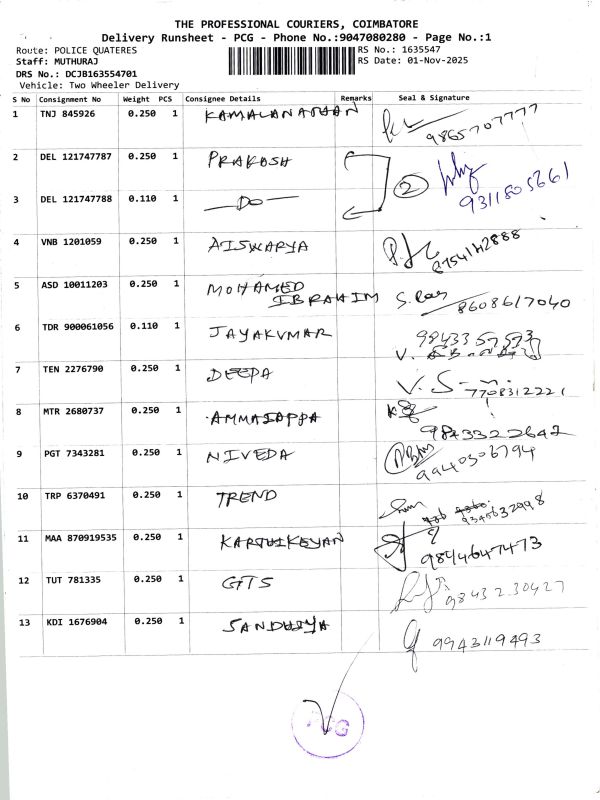 THE PROFESSIONAL COURIERS, COIMBATORE
Delivery Runsheet - PCG - Phone No.:9047080280 - Page No.:1
Route: POLICE QUATERES RS No.: 1635547
Staff: MUTHURAJ RS Date: 01-Nov-2025
DRS No.: DCJB163554701
Vehicle: Two Wheeler Delivery
S No Consignment No Weight PCS Consignee Details Remarks Seal & Signature
1 TNJ 845926 0.250 1 KAMALANATHAN 9865707777
2 DEL 121747787 0.250 1 PRAKASH
3 DEL 121747788 0.110 1 —Do— 2 9311805661
4 VNB 1201059 0.250 1 AISWARYA 8754142888
5 ASD 10011203 0.250 1 MOHAMED IBRAHIM 8608617040
6 TDR 900061056 0.110 1 JAYAKUMAR
7 TEN 2276790 0.250 1 DEEPA 7708312221
8 MTR 2680737 0.250 1 9843322642
9 PGT 7343281 0.250 1 NIVEDA 9940306794
10 TRP 6370491 0.250 1 TREND 9345632998
11 MAA 870919535 0.250 1 KARTHIKEYAN 9844647473
12 TUT 781335 0.250 1 GTS 9843230427
13 KDI 1676904 0.250 1 SANDHIYA 9943119493
PCG